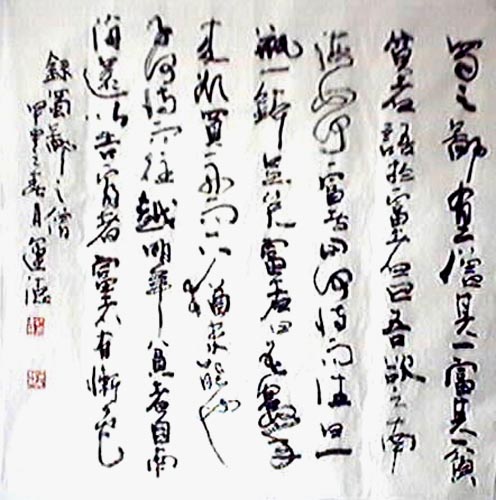 蜀之鄙有二僧其一富其一貧
貧者語於富者曰吾欲之南
海何如富者曰何恃而往曰一
瓶一缽足矣富者曰吾數年
來欲買舟而下猶未能也
子何恃而往越明年貧者自南
海還以告富者富者有慚色
錄蜀鄙之僧
甲之春月運